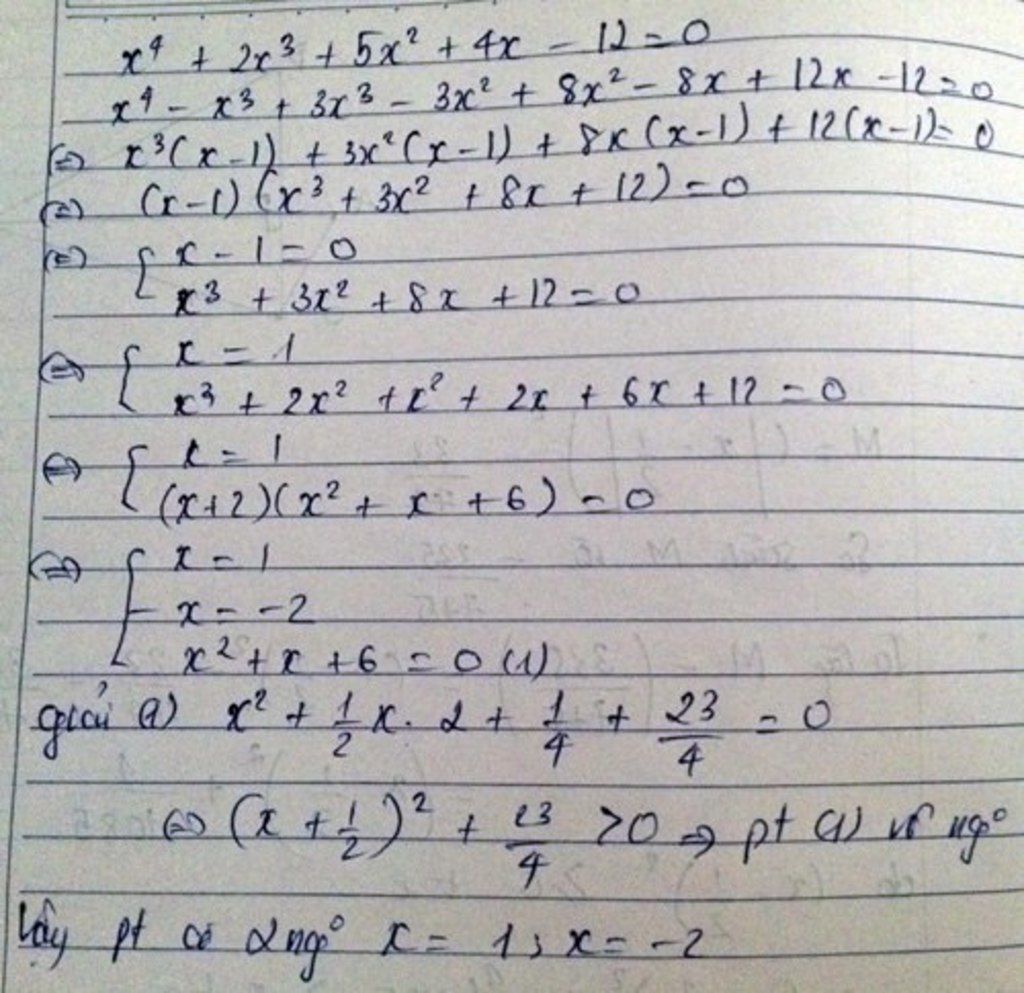 x⁴ + 2x³ + 5x² + 4x - 12 = 0
x⁴ - x³ + 3x³ - 3x² + 8x² - 8x + 12x - 12 = 0
(=) x³(x-1) + 3x²(x-1) + 8x(x-1) + 12(x-1) = 0
(=) (x-1)(x³ + 3x² + 8x + 12) = 0
(=) { x - 1 = 0
x³ + 3x² + 8x + 12 = 0
⇔ { x = 1
x³ + 2x² + x² + 2x + 6x + 12 = 0
⇔ { x = 1
(x+2)(x² + x + 6) = 0
⇔ [ x = 1
x = -2
x² + x + 6 = 0 (1)
giải (1) x² + 1/2 x . 2 + 1/4 + 23/4 = 0
⇔ (x + 1/2)² + 23/4 > 0 ⇒ pt (1) vô ngº
Vậy pt có 2 ngº x = 1 ; x = -2